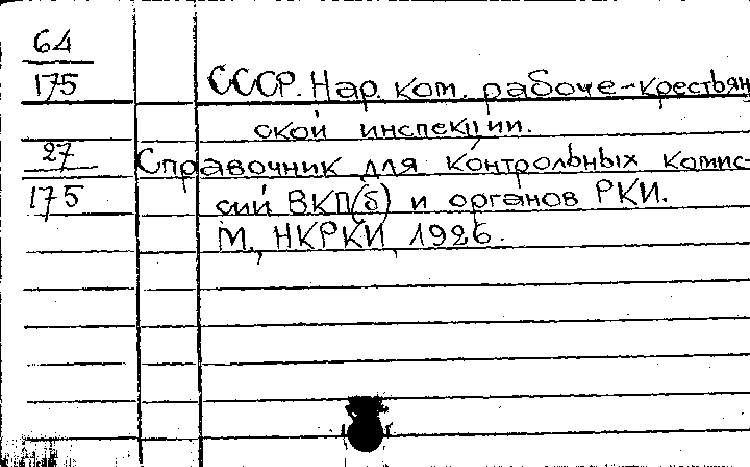 64
175
СССР. Нар. ком. рабоче-крестьян
ской инспекции.
27
175
Справочник для контрольных комис-
сий ВКП(б) и органов РКИ.
М., НКРКИ, 1926.